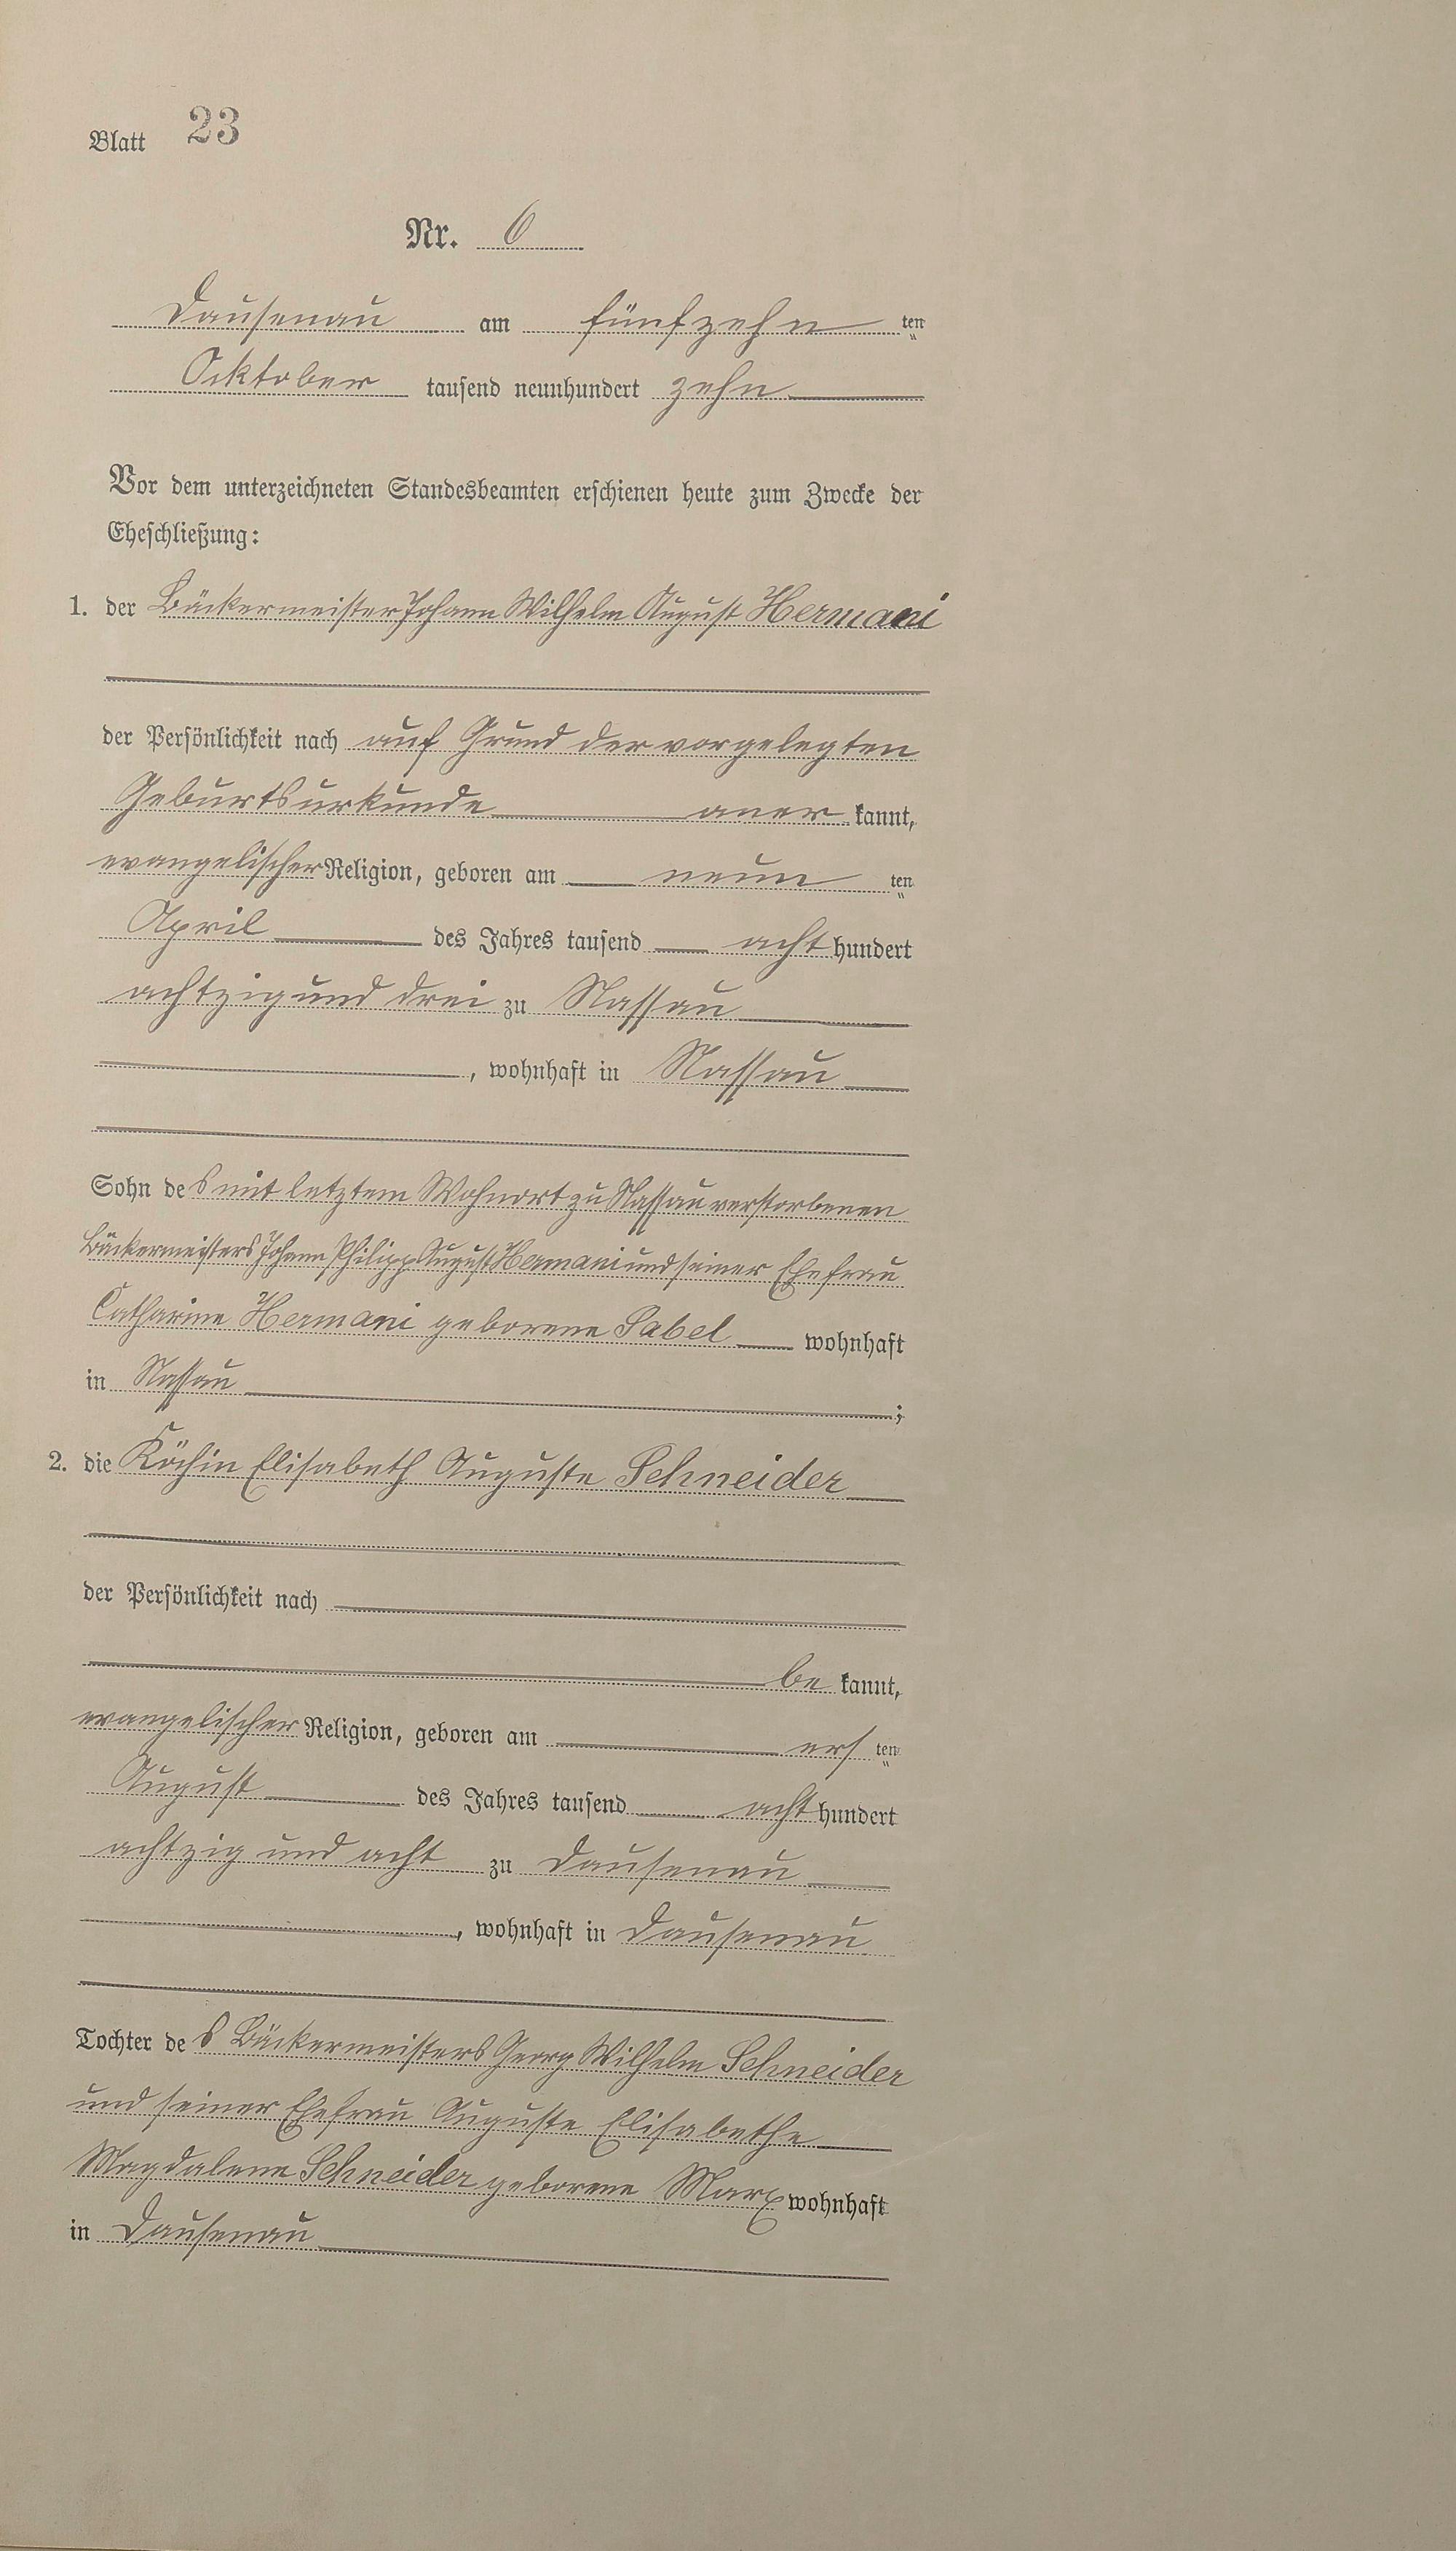 Blatt 23
Nr. 6
Dausenau am fünfzehn ten
Ocktober tausend neunhundert zehn
Vor dem unterzeichneten Standesbeamten erschienen heute zum Zwecke der
Eheschließung:
1. der Bäckermeister Johann Wilhelm August Hermani
der Persönlichkeit nach auf Grund der vorgelegten
Geburtsurkunde aner kannt,
evangelischer Religion, geboren am neun ten
April des Jahres tausend acht hundert
achtzig und drei zu Nassau
, wohnhaft in Nassau
Sohn des mit letztem Wohnort zu Nassau verstorbenen
Bäckermeisters Johann Philipp August Hermani und seiner Ehefrau
Catharine Hermani geborene Sabel wohnhaft
in Nassau ;
2. die Köchin Elisabeth Auguste Schneider
der Persönlichkeit nach
be kannt,
evangelischer Religion, geboren am ers ten
August des Jahres tausend acht hundert
achtzig und acht zu Dausenau
, wohnhaft in Dausenau
Tochter des Bäckermeisters Georg Wilhelm Schneider
und seiner Ehefrau Auguste Elisabethe
Magdalene Schneider geborene Marx wohnhaft
in Dausenau